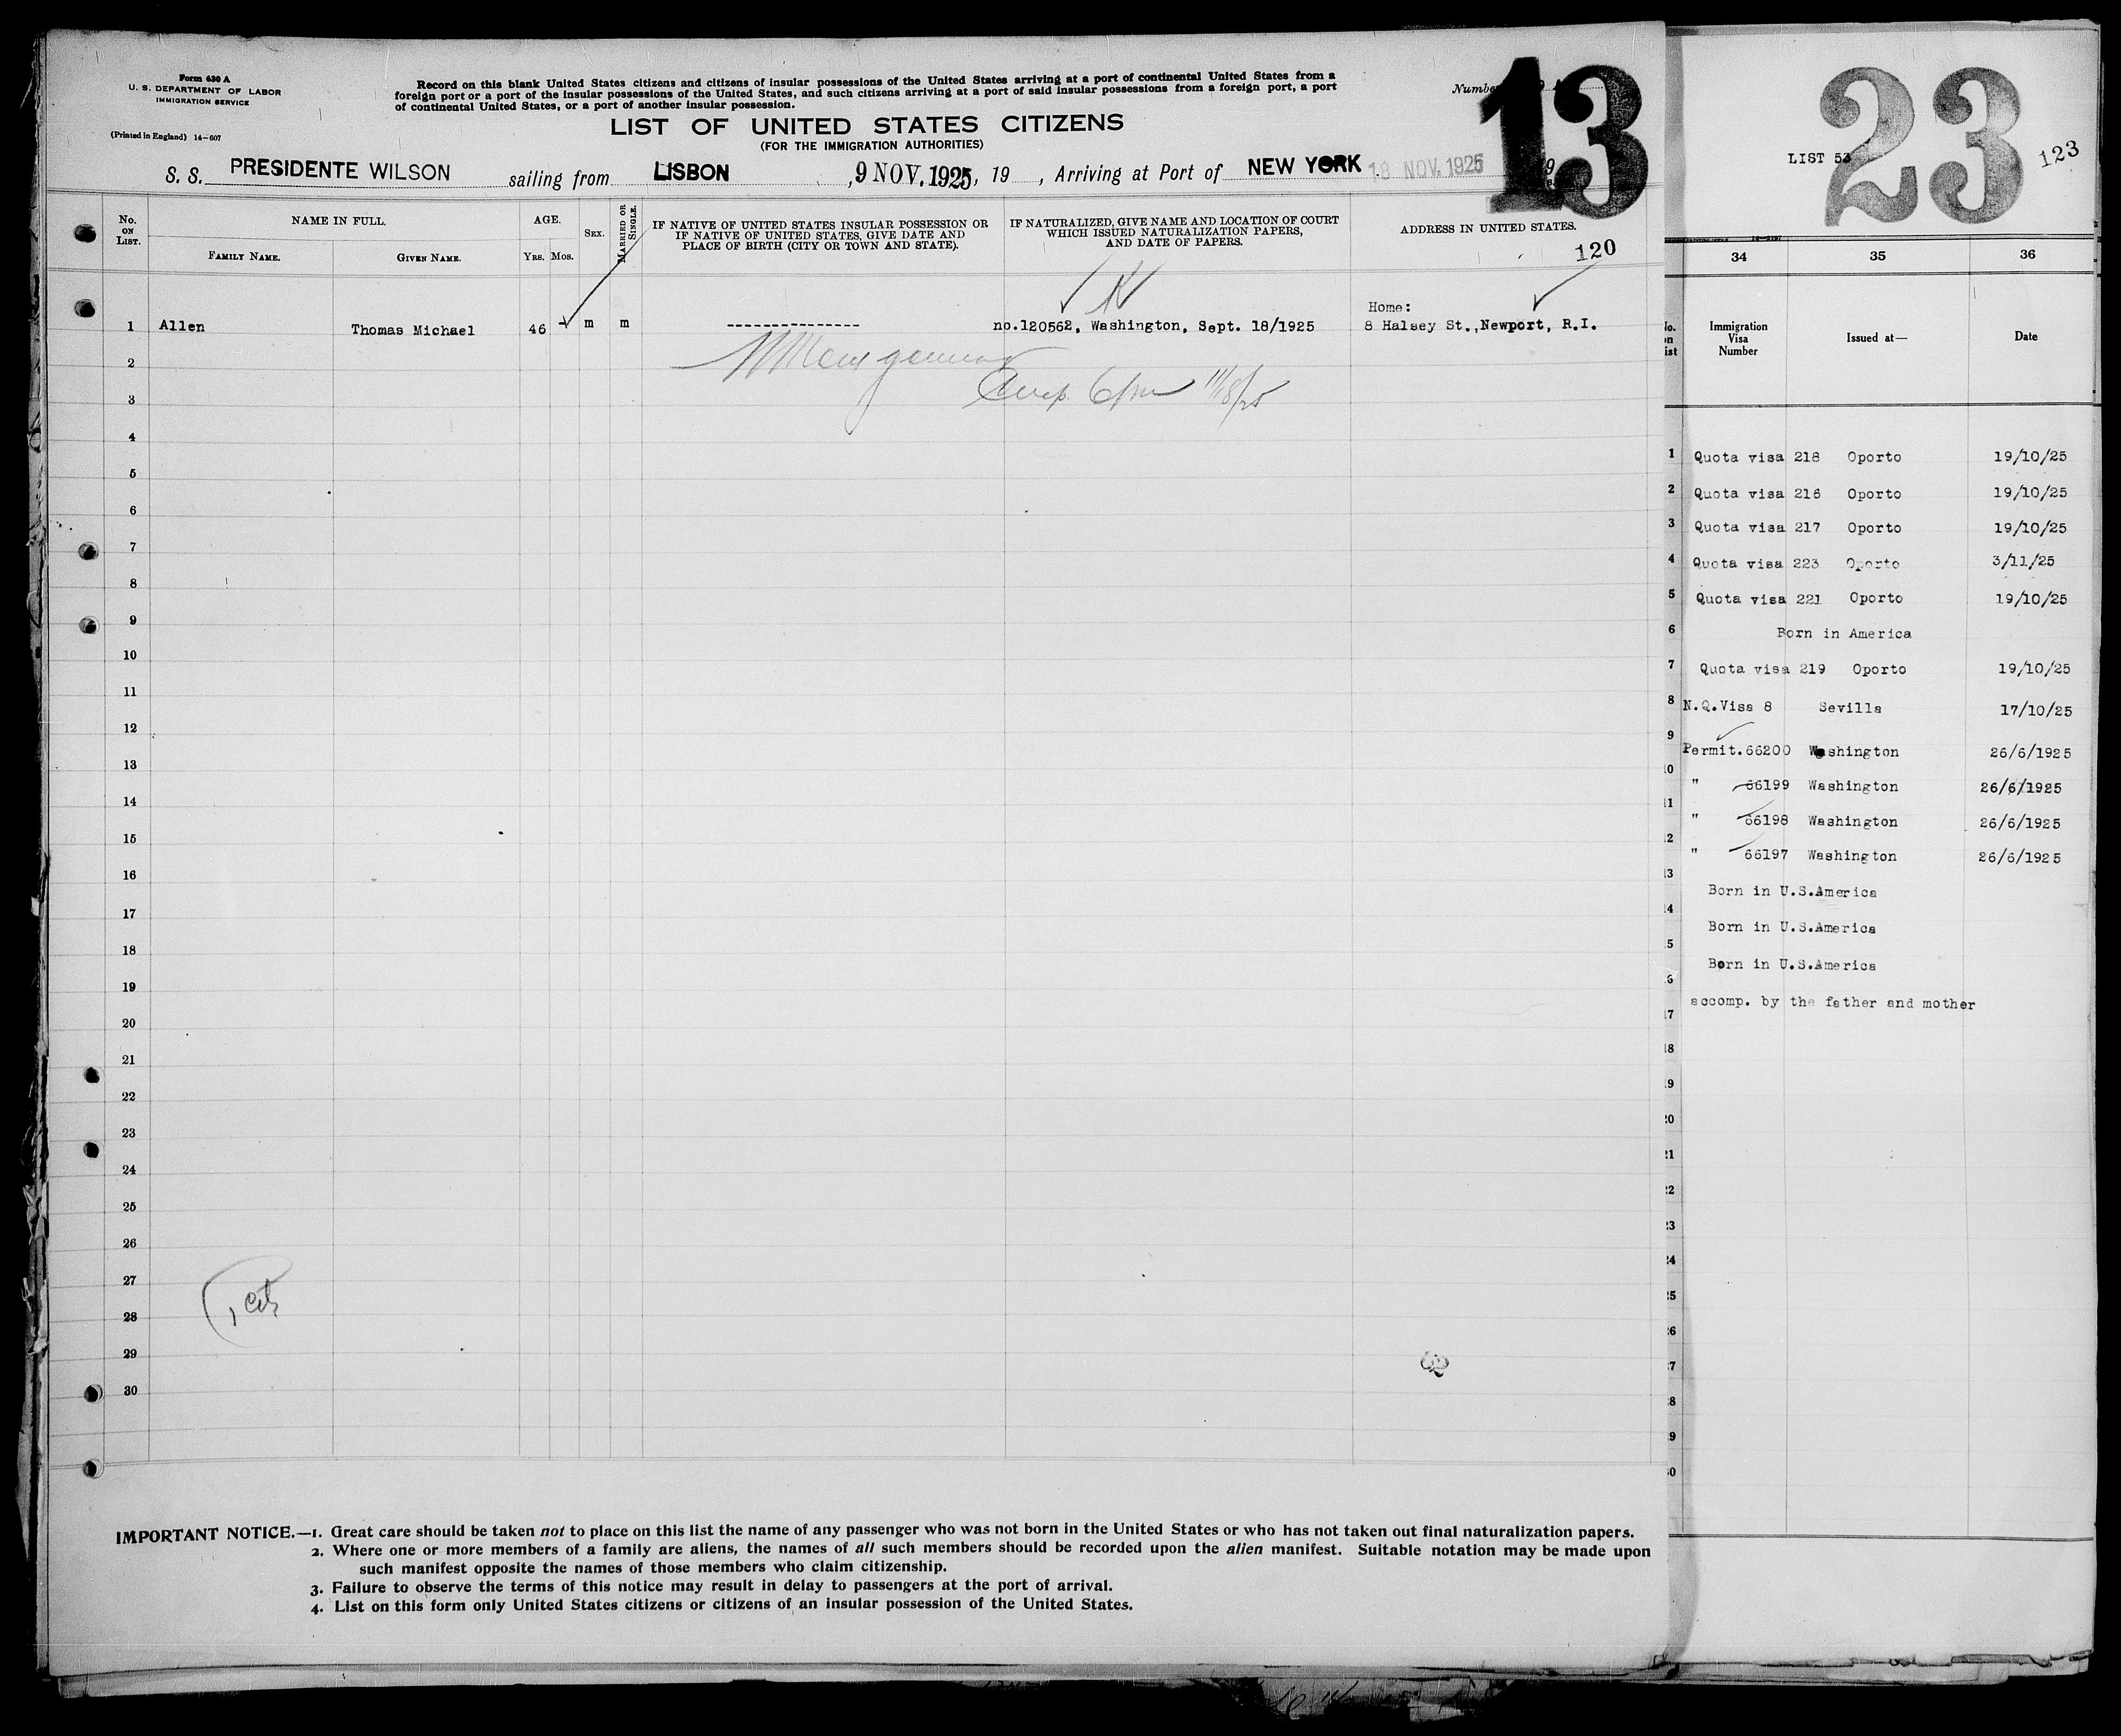 Form 630 A
U. S. DEPARTMENT OF LABOR
IMMIGRATION SERVICE
(Printed in England) 14—607
Record on this blank United States citizens and citizens of insular possessions of the United States arriving at a port of continental United States from a
foreign port or a port of the insular possessions of the United States, and such citizens arriving at a port of said insular possessions from a foreign port, a port
of continental United States, or a port of another insular possession.
Number
13
LIST OF UNITED STATES CITIZENS
(FOR THE IMMIGRATION AUTHORITIES)
S. S. PRESIDENTE WILSON sailing from LISBON , 9 NOV. 1925, 19 , Arriving at Port of NEW YORK 18 NOV. 1925
No. ON LIST.
NAME IN FULL.
FAMILY NAME.
GIVEN NAME.
AGE.
YRS. MOS.
SEX.
MARRIED OR SINGLE.
IF NATIVE OF UNITED STATES INSULAR POSSESSION OR
IF NATIVE OF UNITED STATES, GIVE DATE AND
PLACE OF BIRTH (CITY OR TOWN AND STATE).
IF NATURALIZED, GIVE NAME AND LOCATION OF COURT
WHICH ISSUED NATURALIZATION PAPERS,
AND DATE OF PAPERS.
ADDRESS IN UNITED STATES.
120
Home:
1 Allen Thomas Michael 46 - m m --------------- no.120562, Washington, Sept. 18/1925 8 Halsey St.,Newport, R.I.
2
3
11/18/25
4
5
6
7
8
9
10
11
12
13
14
15
16
17
18
19
20
21
22
23
24
25
26
27
28
29
30
IMPORTANT NOTICE.—1. Great care should be taken not to place on this list the name of any passenger who was not born in the United States or who has not taken out final naturalization papers.
2. Where one or more members of a family are aliens, the names of all such members should be recorded upon the alien manifest. Suitable notation may be made upon
such manifest opposite the names of those members who claim citizenship.
3. Failure to observe the terms of this notice may result in delay to passengers at the port of arrival.
4. List on this form only United States citizens or citizens of an insular possession of the United States.
23
LIST 53
123
34 35 36
Immigration
Visa
Number
Issued at—
Date
1 Quota visa 218 Oporto 19/10/25
2 Quota visa 216 Oporto 19/10/25
3 Quota visa 217 Oporto 19/10/25
4 Quota visa 223 Oporto 3/11/25
5 Quota visa 221 Oporto 19/10/25
6 Born in America
7 Quota visa 219 Oporto 19/10/25
8 N.Q.Visa 8 Sevilla 17/10/25
9 Permit.66200 Washington 26/6/1925
" 66199 Washington 26/6/1925
" 66198 Washington 26/6/1925
" 66197 Washington 26/6/1925
Born in U.S.America
Born in U.S.America
Born in U.S.America
accomp. by the father and mother